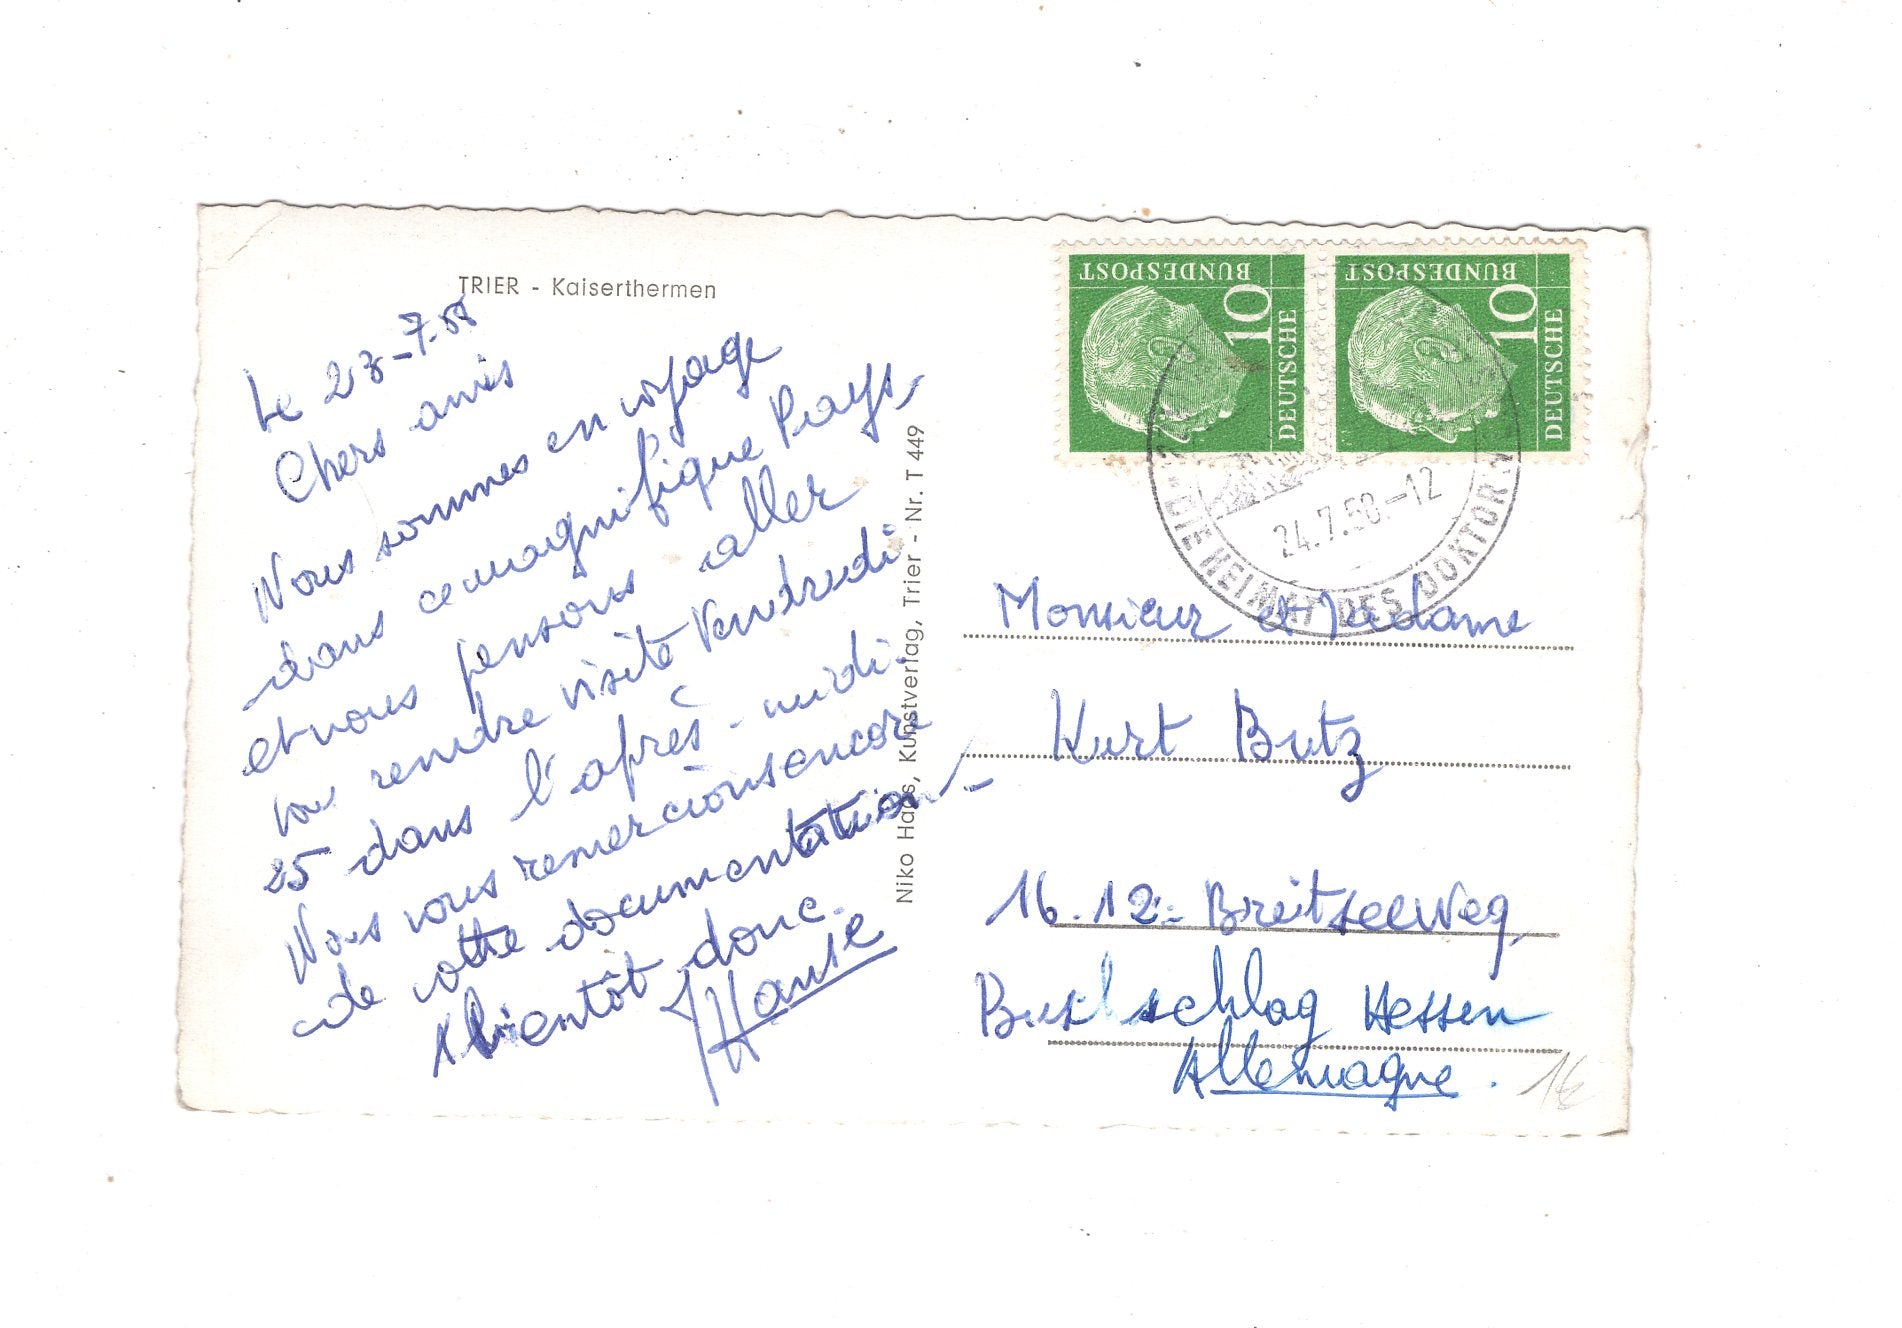 TRIER - Kaiserthermen
Le 23-7-58
Chers amis
Nous sommes en voyage
dans ce magnifique Pays
et nous pensons aller
vous rendre visite Vendredi
25 dans l'après-midi.
Nous vous remercions encore
de votre documentation -
A bientôt donc.
Niko Haas, Kunstverlag, Trier - Nr. T 449
DEUTSCHE BUNDESPOST 10
DEUTSCHE BUNDESPOST 10
24.7.58.-12
DIE HEIMAT DES DOKTOR
Monsieur et Madame
Kurt Butz
16.12- Breitseeweg,
Buchschlag Hessen
Allemagne.
1€